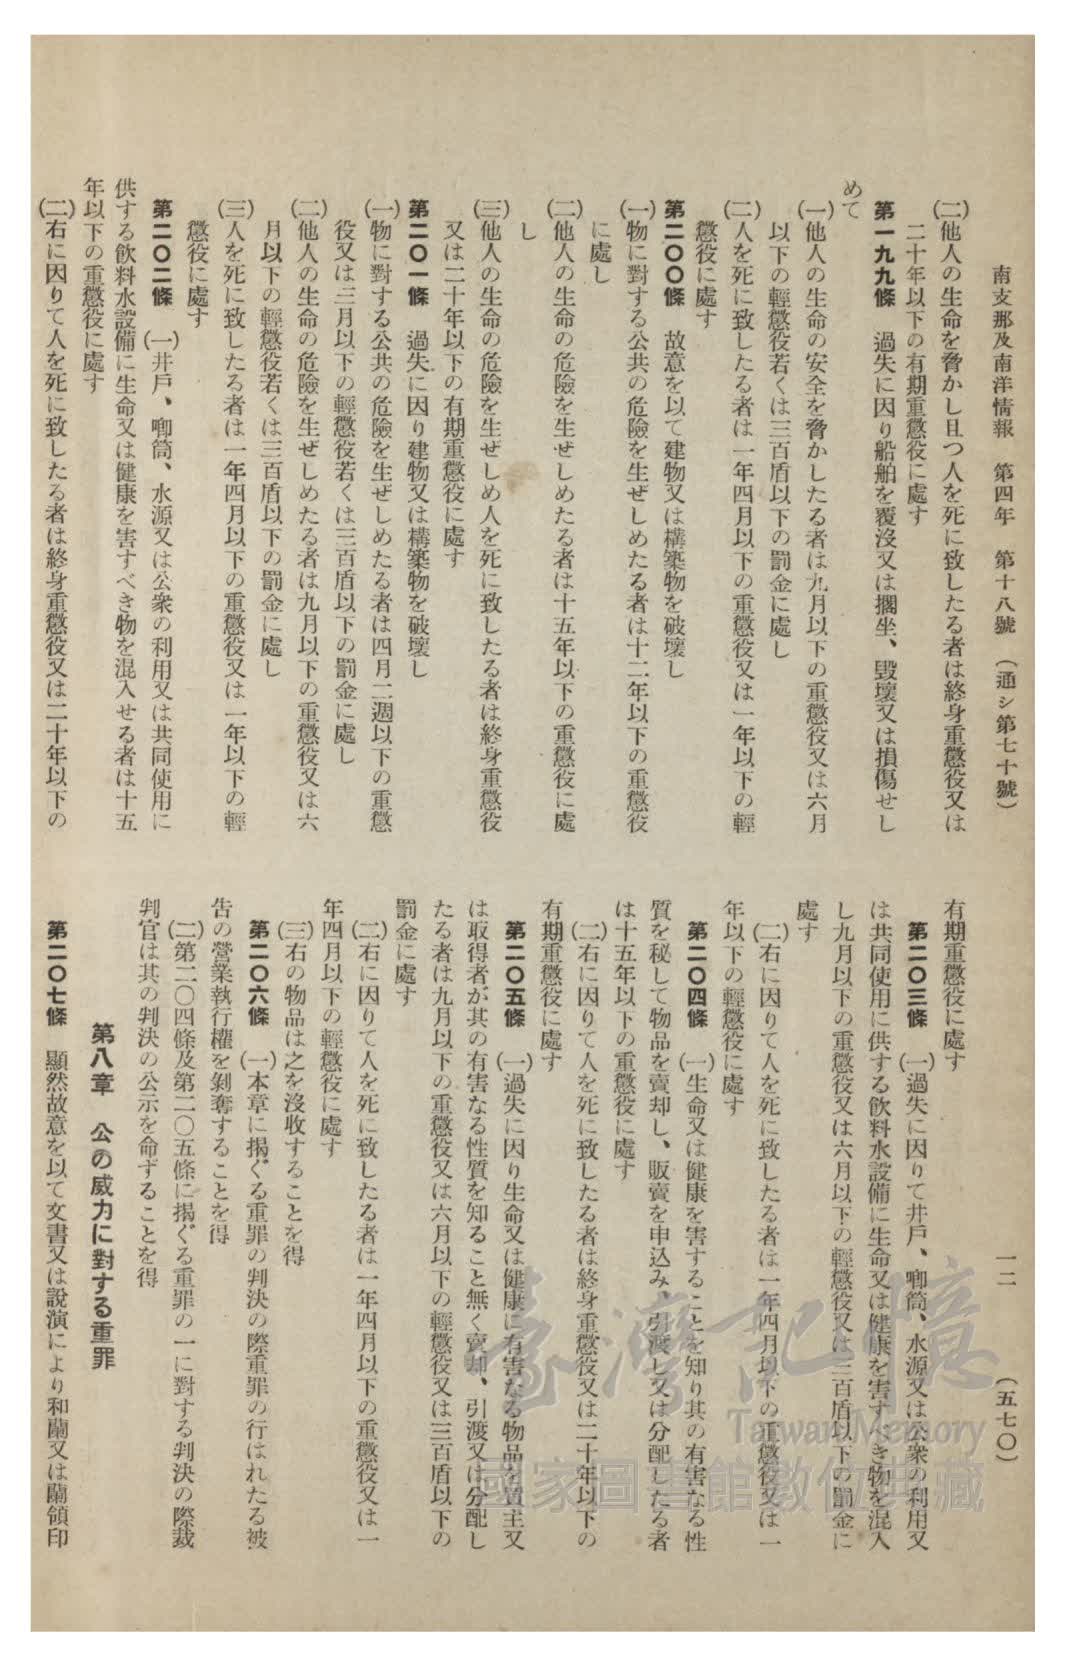 南支那及南洋情報　第四年　第十八號　（通シ第七十號）　一二　（五七〇）
(二)他人の生命を脅かし且つ人を死に致したる者は終身重懲役又は
二十年以下の有期重懲役に處す
第一九九條　過失に因り船舶を覆沒又は擱坐、毀壞又は損傷せし
めて
(一)他人の生命の安全を脅かしたる者は九月以下の重懲役又は六月
以下の輕懲役若くは三百盾以下の罰金に處し
(二)人を死に致したる者は一年四月以下の重懲役又は一年以下の輕
懲役に處す
第二〇〇條　故意を以て建物又は構築物を破壞し
(一)物に對する公共の危險を生ぜしめたる者は十二年以下の重懲役
に處し
(二)他人の生命の危險を生ぜしめたる者は十五年以下の重懲役に處
し
(三)他人の生命の危險を生ぜしめ人を死に致したる者は終身重懲役
又は二十年以下の有期重懲役に處す
第二〇一條　過失に因り建物又は構築物を破壞し
(一)物に對する公共の危險を生ぜしめたる者は四月二週以下の重懲
役又は三月以下の輕懲役若くは三百盾以下の罰金に處し
(二)他人の生命の危險を生ぜしめたる者は九月以下の重懲役又は六
月以下の輕懲役若くは三百盾以下の罰金に處し
(三)人を死に致したる者は一年四月以下の重懲役又は一年以下の輕
懲役に處す
第二〇二條　(一)井戶、喞筒、水源又は公衆の利用又は共同使用に
供する飮料水設備に生命又は健康を害すべき物を混入せる者は十五
年以下の重懲役に處す
(二)右に因りて人を死に致したる者は終身重懲役又は二十年以下の
有期重懲役に處す
第二〇三條　(一)過失に因りて井戶、喞筒、水源又は公衆の利用又
は共同使用に供する飮料水設備に生命又は健康を害すべき物を混入
し九月以下の重懲役又は六月以下の輕懲役又は三百盾以下の罰金に
處す
(二)右に因りて人を死に致したる者は一年四月以下の重懲役又は一
年以下の輕懲役に處す
第二〇四條　(一)生命又は健康を害することを知り其の有害なる性
質を秘して物品を賣却し、販賣を申込み、引渡し又は分配したる者
は十五年以下の重懲役に處す
(二)右に因りて人を死に致したる者は終身重懲役又は二十年以下の
有期重懲役に處す
第二〇五條　(一)過失に因り生命又は健康に有害なる物品を買主又
は取得者が其の有害なる性質を知ること無く賣却、引渡又は分配し
たる者は九月以下の重懲役又は六月以下の輕懲役又は三百盾以下の
罰金に處す
(二)右に因りて人を死に致したる者は一年四月以下の重懲役又は一
年四月以下の輕懲役に處す
(三)右の物品は之を沒收することを得
第二〇六條　(一)本章に揭ぐる重罪の判決の際重罪の行はれたる被
告の營業執行權を剝奪することを得
(二)第二〇四條及第二〇五條に揭ぐる重罪の一に對する判決の際裁
判官は其の判決の公示を命ずることを得
第八章　公の威力に對する重罪
第二〇七條　顯然故意を以て文書又は說演により和蘭又は蘭領印
臺灣記憶
Taiwan Memory
國家圖書館數位典藏